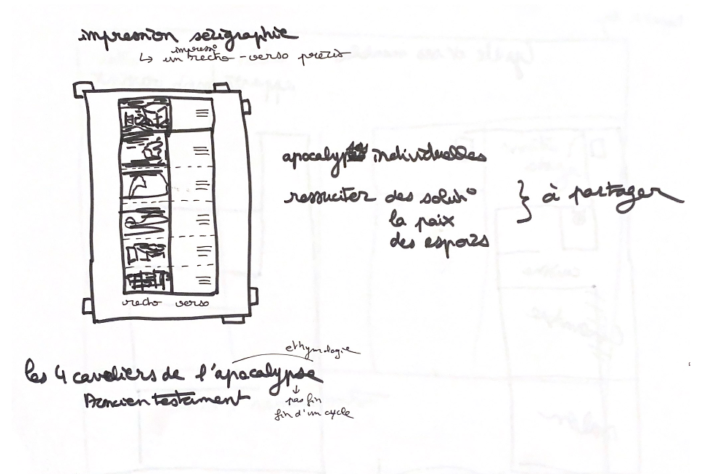 impression sérigraphie
↳ un impress° recto-verso précis
apocalypses individuelles
ressuciter des solut°
la paix
des espoirs
} à partager
recto verso
ethymologie
les 4 cavaliers de l'apocalypse
Ancien testament
↓
pas fin
fin d'un cycle